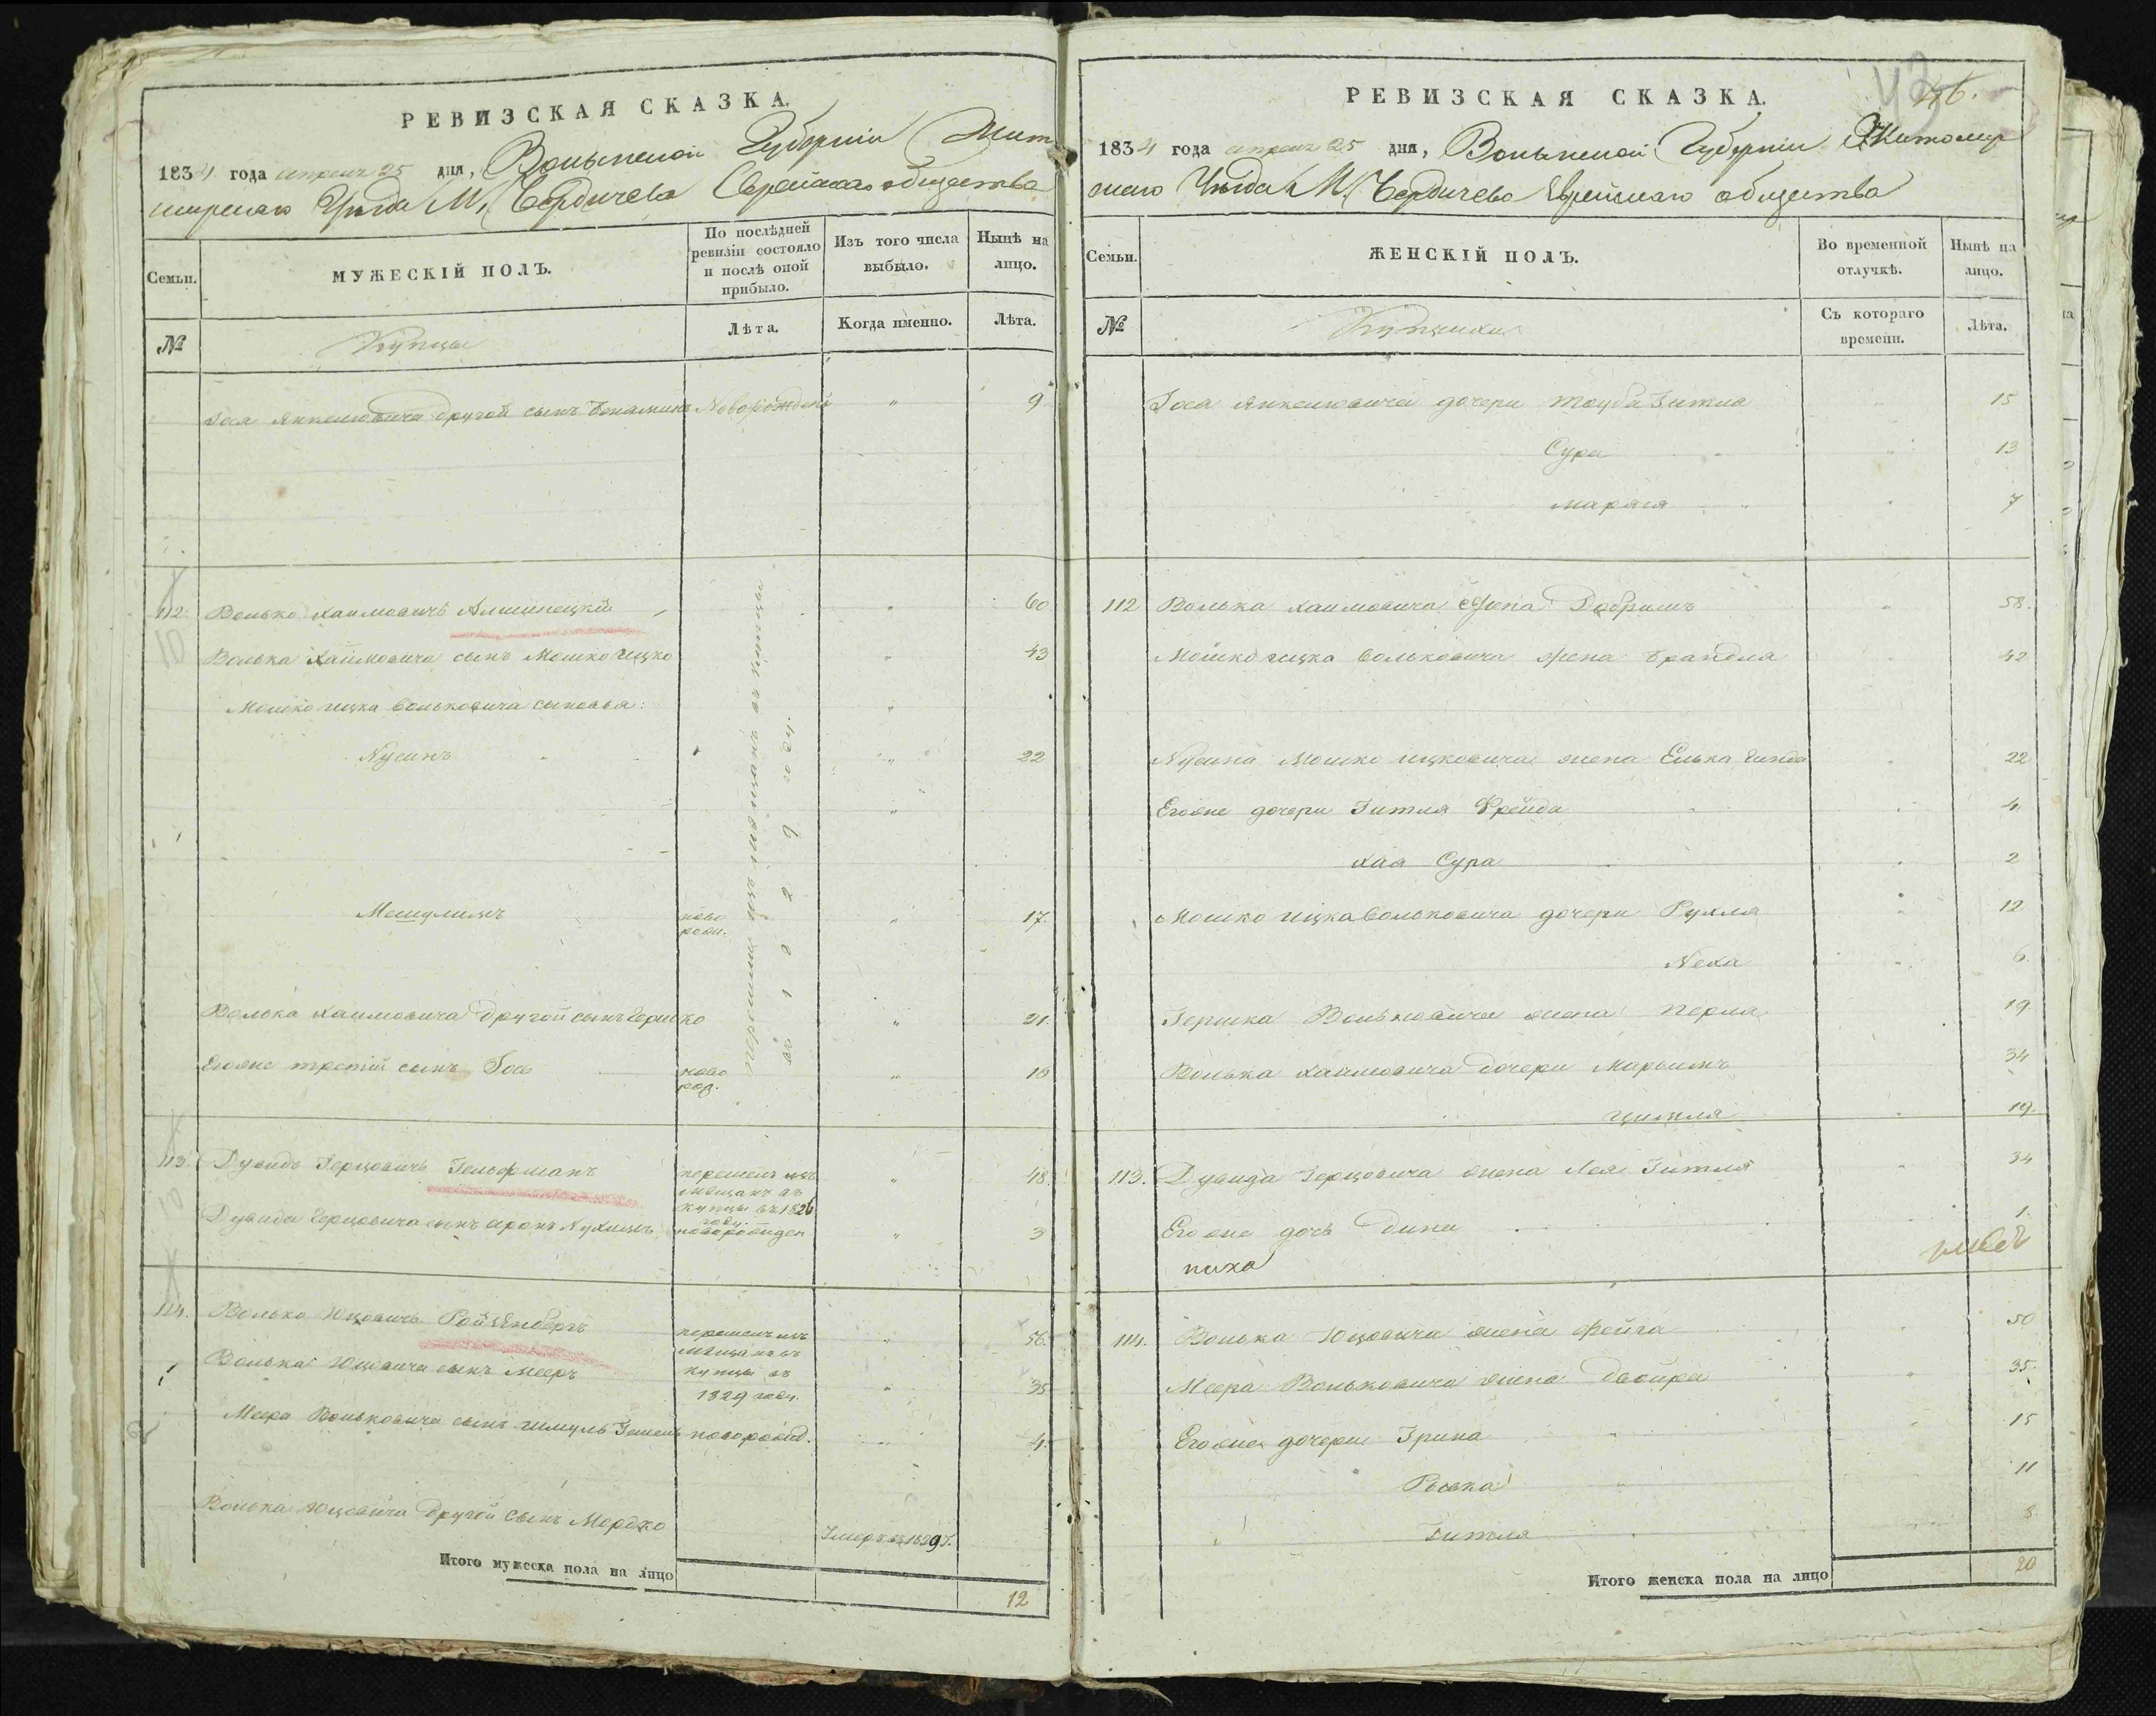 РЕВИЗСКАЯ СКАЗКА.
1834 года апреля 25 дня, Волынской Губерніи Жит
мирскаго Уѣзда М. Бердичева Еврейскаго общества
Семьи.
МУЖЕСКІЙ ПОЛЪ.
По послѣдней ревизіи состояло и послѣ оной прибыло.
Изъ того числа выбыло.
Нынѣ на лицо.
№
Купцы
Лѣта.
Когда именно.
Лѣта.
Іося Янкелювича другой сынъ Бенаминъ Новорожденъ " 9
112. Волько Хаимовичъ " 60
Волька Хаимовича сынъ Мошко Ицко " 43
Мошко Ицка Вольковича сыновья: "
Нусинъ " 22
"
Мешулимъ ново рож. " 17.
Волька Хаимовича другой сынъ Гершко " 21.
Егоже третій сынъ Іось ново рож. " 16
перешли изъ мѣщанъ въ купцы
въ 1829 году.
113. Дувидъ Герцовичъ Гельфманъ перешелъ изъ мѣщанъ въ купцы въ 1826 году. " 48.
Дувида Герцовича сынъ Аронъ Нухимъ новорожден " 3
114. Волько Юцовичъ Ройзенбергъ перешелъ изъ " 56.
Волька Юцовича сынъ Мееръ мѣщанъ въ купцы въ 1829 году. " 35
Меера Вольковича сынъ Шмуль новорожд. " 4.
Волька Юцовича другой сынъ Мордко Умеръ въ 1829 г.
Итого мужеска пола на лицо
12
РЕВИЗСКАЯ СКАЗКА.
46.
43
1834 года апреля 25 дня, Волынской Губерніи Житомир
скаго Уѣзда М. Бердичева Еврейскаго общества
Семьи.
ЖЕНСКІЙ ПОЛЪ.
Во временной отлучкѣ.
Нынѣ на лицо.
№
Купчихи
Съ котораго времени.
Лѣта.
Іося Янкелювича дочери Тауба Гитля " 15
Сура " 13
Маряся " 7
112 Волька Хаимовича жена Добрышъ " 58.
Мошко Ицка Вольковича жена Брандля " 42
Нусина Мошко Ицковича жена Елька Гинда " 22
Егоже дочери Гитля Фрейда " 4
Хая Сура " 2
Мошко Ицка Вольковича дочери Рухля " 12
Неха " 6.
Гершка Вольковича жена Перля 19.
Волька Хаимовича дочери Марьимъ 34
Цитля " 19.
113. Дувида Герцовича жена Лея Гитля " 34
Егоже дочь Дина 1.
114. Волька Юцовича жена Фейга 50
Меера Вольковича жена Двойра " 35.
Егоже дочери Грина " 15
Рывка " 11
Гитля 8.
Итого женска пола на лицо
20